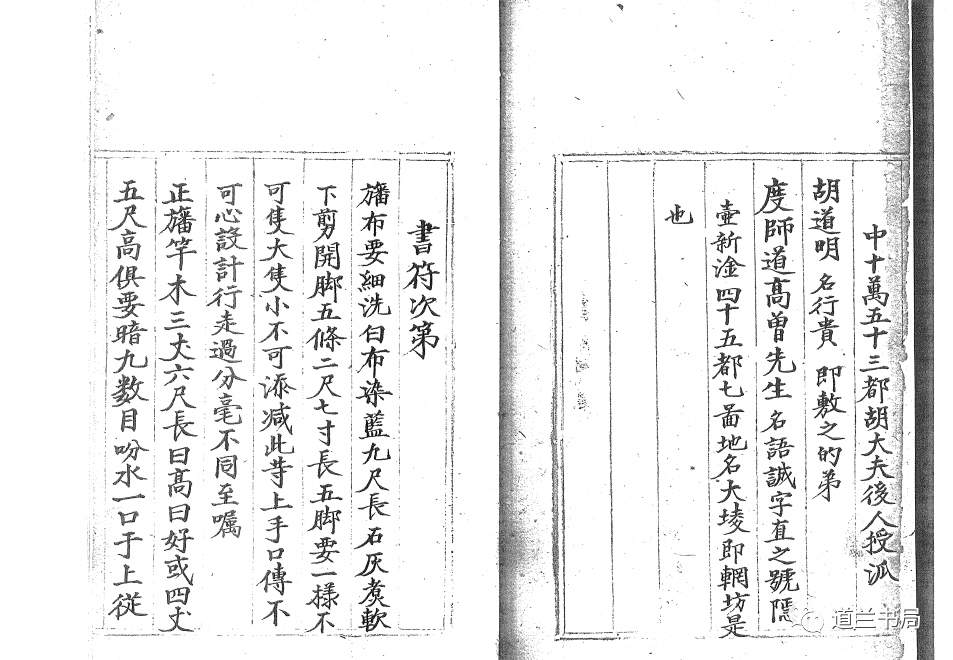 中十萬五十三都胡大夫後人授派
胡道明 名行貴 即敷之的弟
度師道高曾先生 名語誠字直之號隱
壷新淦四十五都七啚地名大堎即輞坊是
也
書符次第
旛布要細洗白布染藍九尺長石灰煑軟
下剪開脚五條二尺七寸長五脚要一樣不
可隻大隻小不可添减此等上手口傳不
可心設計行走過分毫不同至嘱
正旛竿木三丈六尺長曰髙曰好或四丈
五尺高俱要暗九数目吩水一口于上従
道兰书局